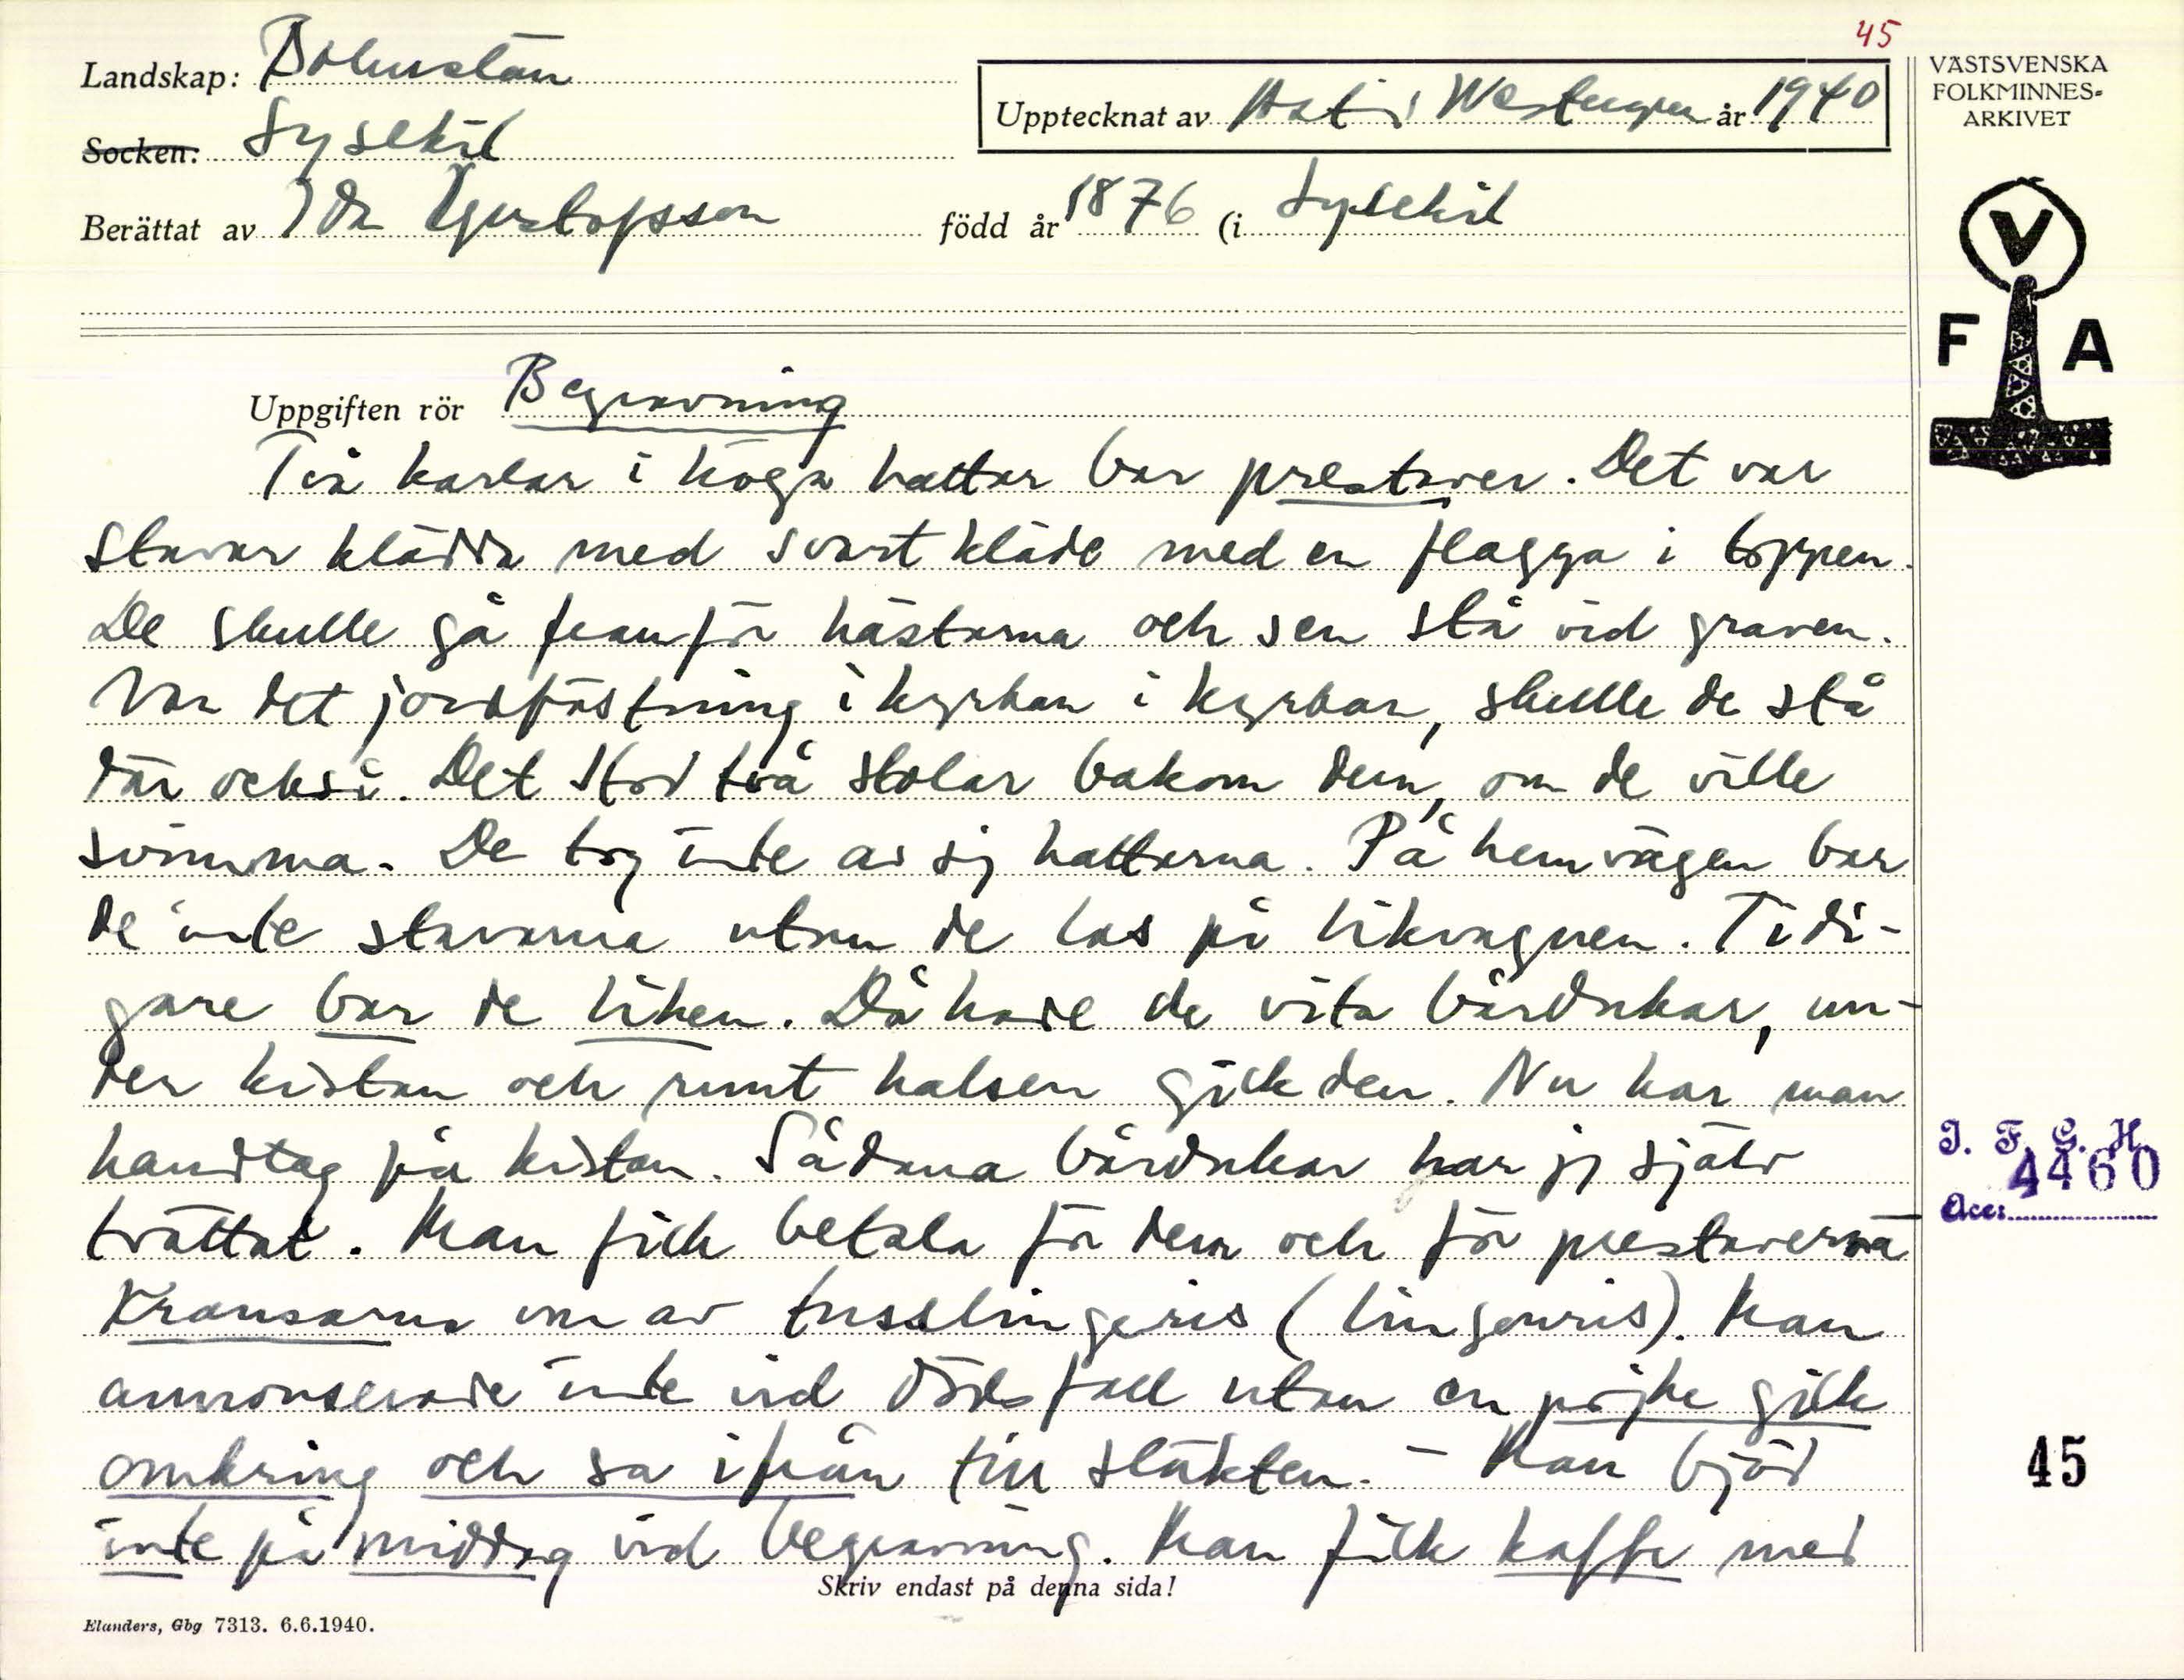 45
Landskap: Bohuslän
Upptecknat av Westergren år 1940
VÄSTSVENSKA
FOLKMINNES-
ARKIVET
Socken: Lysekil
Berättat av Ida Gustafsson född år 1876 (i Lysekil
V
F A
Uppgiften rör Begravning
Två karlar i höga hattar bar prestaver. Det var
stavar klädda med svart kläde med en flagga i toppen.
De skulle gå framför hästarna och sen stå vid graven.
Var det jordfästning i kyrkan i kyrkan, skulle de stå
där också. Det stod två stolar bakom dem, om de ville
svimma. De tog inte av sig hattarna. På hemvägen bar
de inte stavarna utan de las på likvagnen. Tidi-
gare bar de liken. Då hade de vita bårdukar, un-
der kistan och runt halsen gick den. Nu har man
handtag på kistan. Sådana bårdukar har jg själv
tvättat. Man fick betala för dem och för prestaverna
Kransarna var av tusslingeris (lingonris). Man
annonserade inte vid dödsfall utan en pojke gick
omkring och sa ifrån till släkten. - Man bjöd
inte på middag vid begravning. Man fick kaffe med
Skriv endast på denna sida!
Elanders, Gbg 7313. 6.6.1940.
I. F. G. H.
4460
Acc:
45